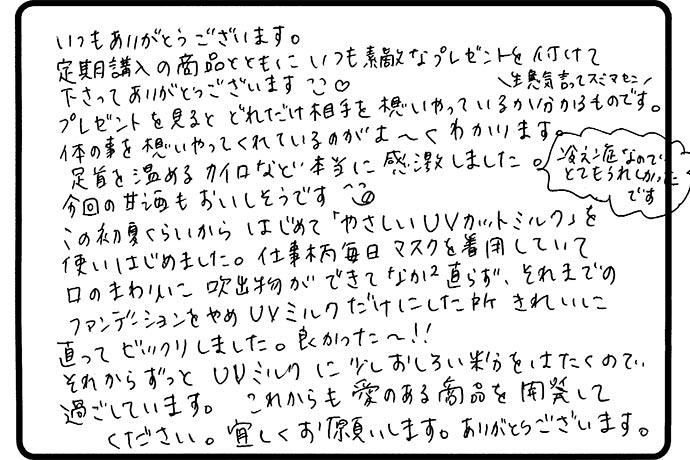 いつもありがとうございます。
定期購入の商品とともに いつも素敵なプレゼントを付けて
下さってありがとうございます
＼生意気言ってスミマセン／
プレゼントを見ると どれだけ相手を想いやっているかが分かるものです。
体の事を想いやってくれているのがよ〜くわかります。
足首を温めるカイロなど 本当に感激しました。
冷え症なので
とてもうれしかった
です
今回の甘酒もおいしそうです
この初夏くらいから はじめて「やさしいUVカットミルク」を
使いはじめました。仕事柄毎日 マスクを着用していて
口のまわりに 吹出物が できて なかなか直らず、それまでの
ファンデーションをやめ UVミルクだけにした所 きれいに
直って ビックリしました。良かった〜!!
それからずっと UVミルク に 少しおしろい粉分をはたくので
過ごしています。 これからも 愛のある商品を 開発して
ください。宜しくお願いします。ありがとうございます。